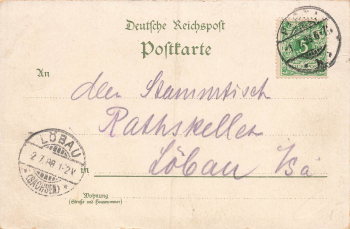 Deutsche Reichspost
Postkarte
5
An
den Stammtisch
Rathskeller
in Löbau i/sa
LÖBAU
2.7.98.1-2V
(SACHSEN)
Wohnung
(Straße und Hausnummer)